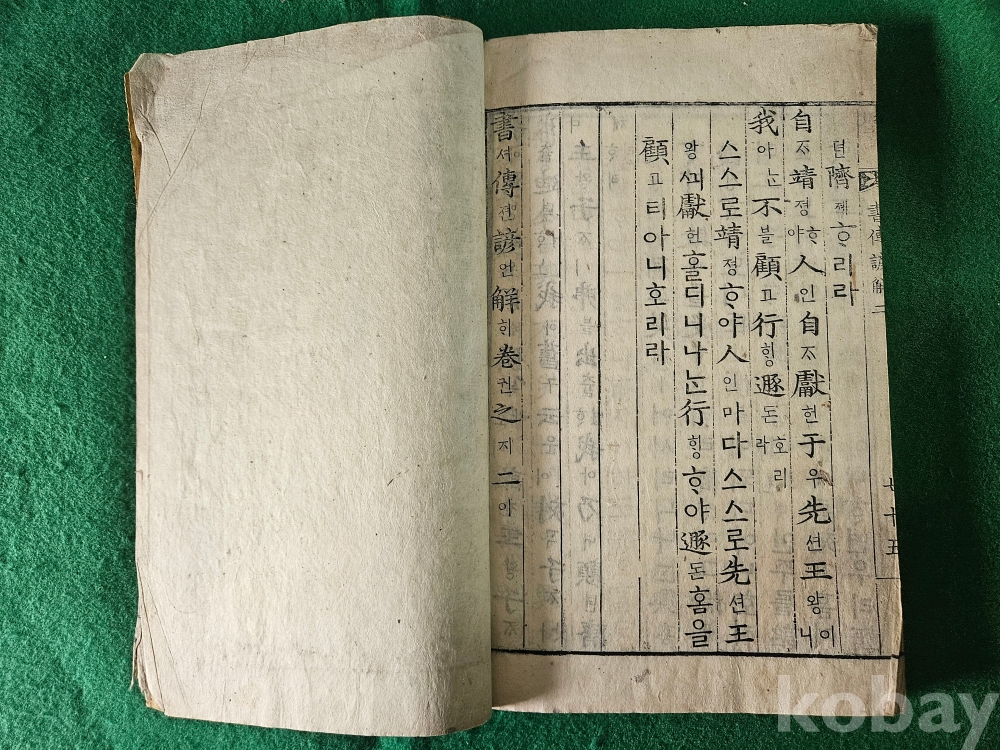 書傳諺解二
七十五
뎐隮졔ᄒᆞ리라
自ᄌᆞ靖졍ᄒᆞ야人인自ᄌᆞ獻헌于우先션王왕이니
我아ᄂᆞᆫ不블顧고行ᄒᆡᆼ遯돈호리라
스스로靖졍ᄒᆞ야人인마다스스로先션王
왕ᄭᅴ獻헌홀디니나ᄂᆞᆫ行ᄒᆡᆼᄒᆞ야遯돈홈을
顧고티아니호리라
書셔傳젼諺언解ᄒᆡ卷권之지二이
kobay